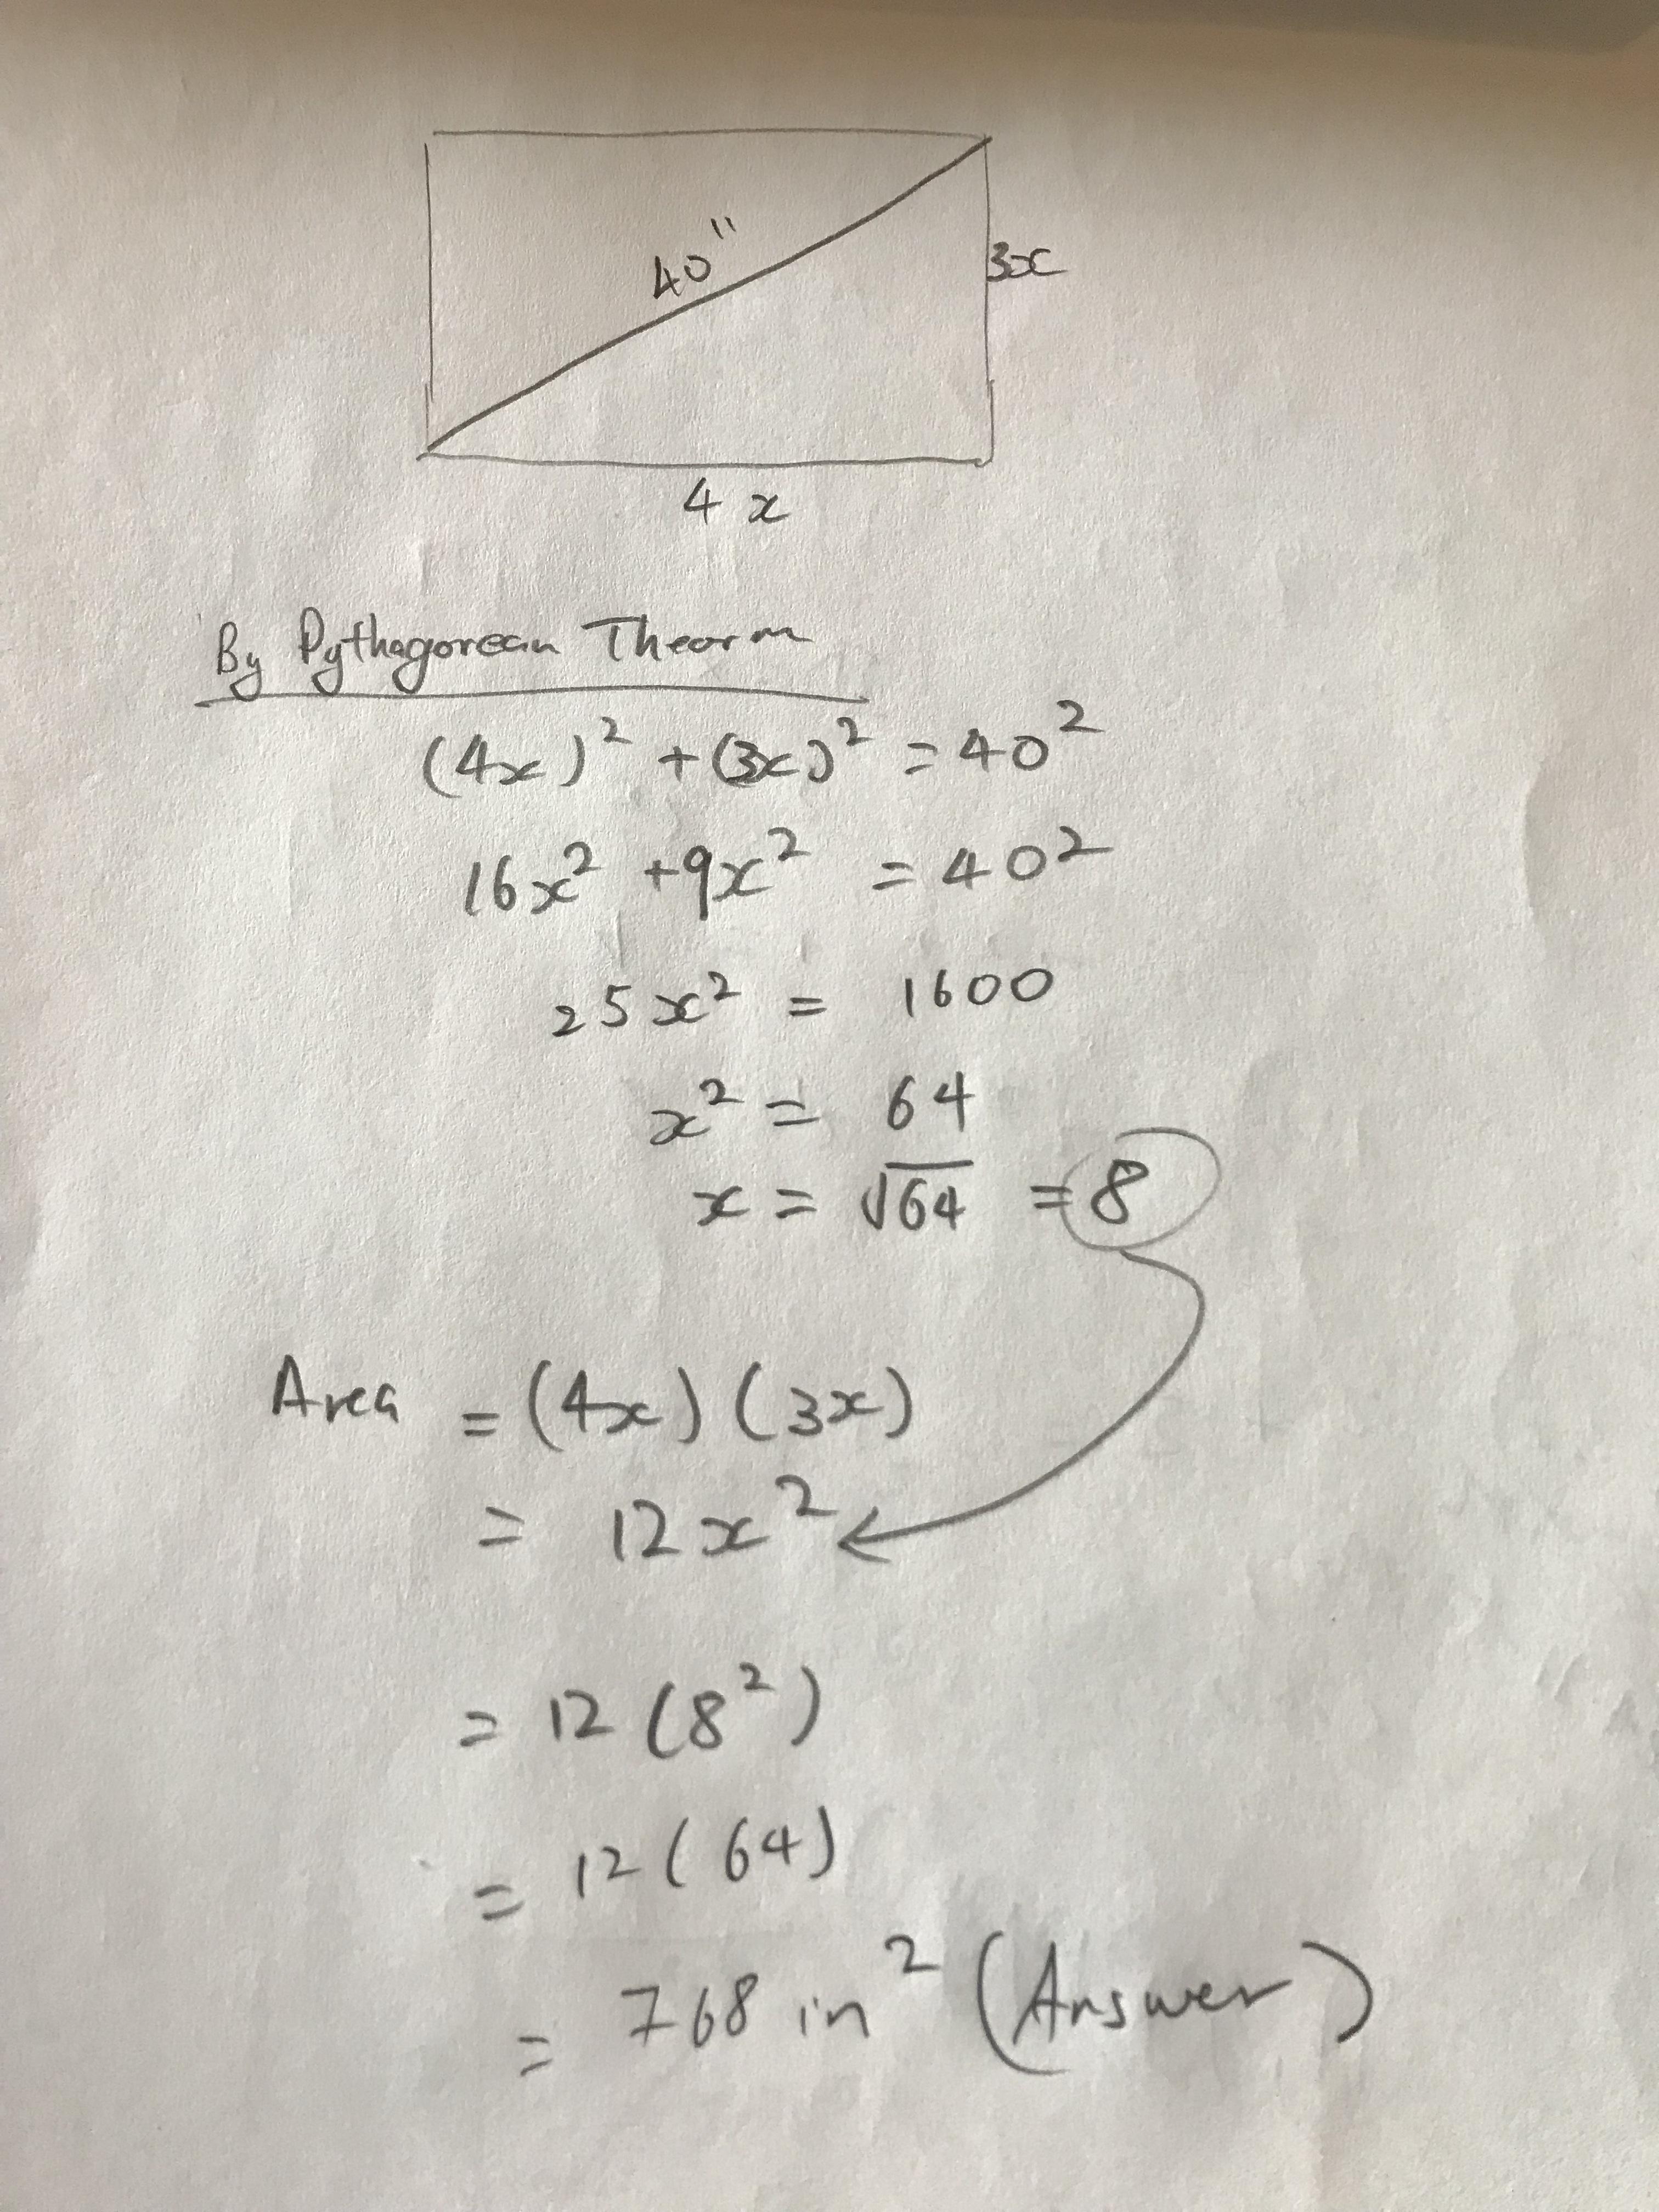 40"
3x
4x
By Pythagorean Theorm
(4x)² + (3x)² = 40²
16x² + 9x² = 40²
25x² = 1600
x² = 64
x = √64 = 8
Area = (4x)(3x)
= 12x²
= 12(8²)
= 12(64)
= 768 in² (Answer)